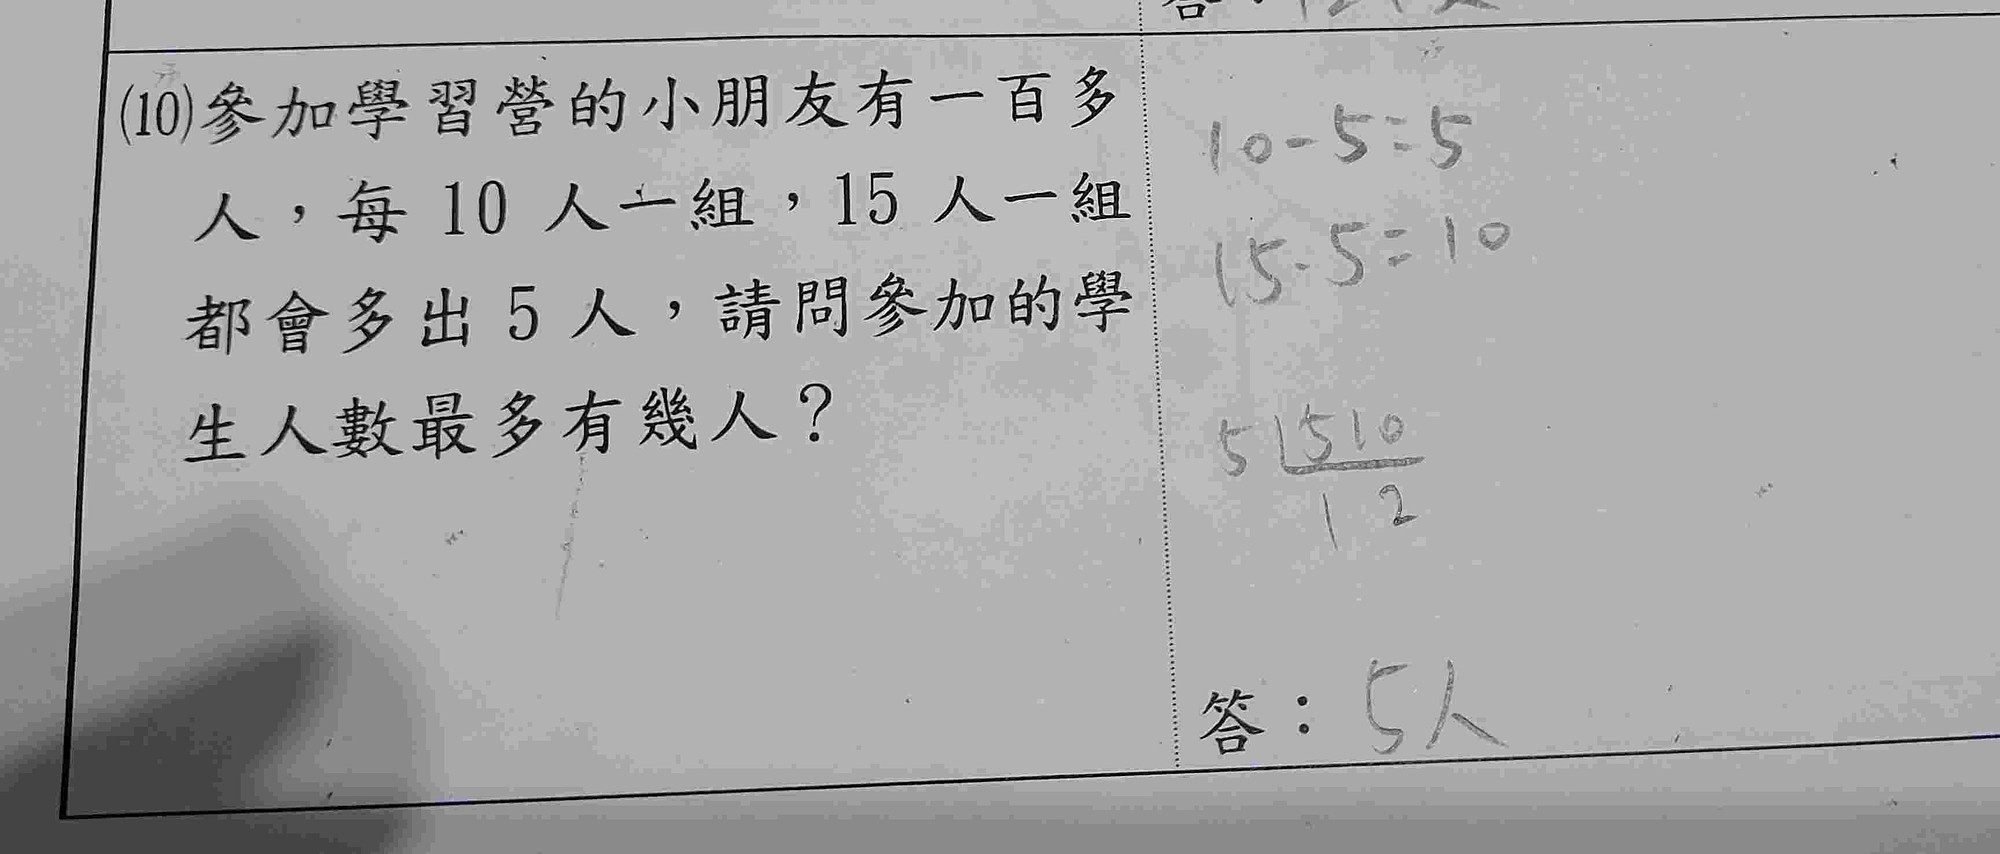 答：
(10)參加學習營的小朋友有一百多
人，每 10 人一組，15 人一組
都會多出 5 人，請問參加的學
生人數最多有幾人？
10-5=5
15-5=10
5 5 10
1 2
答：5人